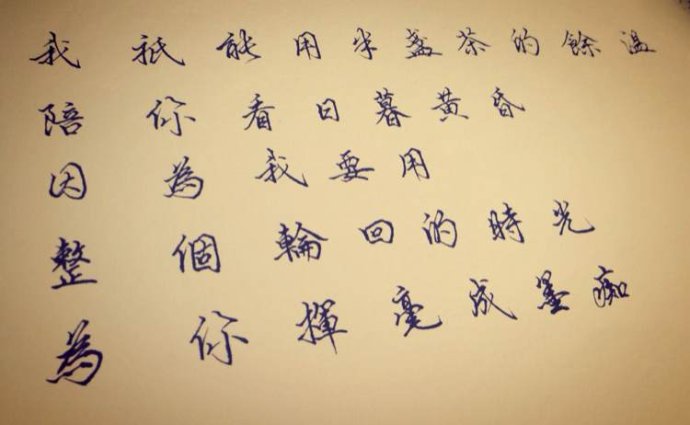 我祇能用半盞茶的餘溫
陪你看日暮黃昏
因為我要用
整個輪回的時光
為你揮毫成墨痴